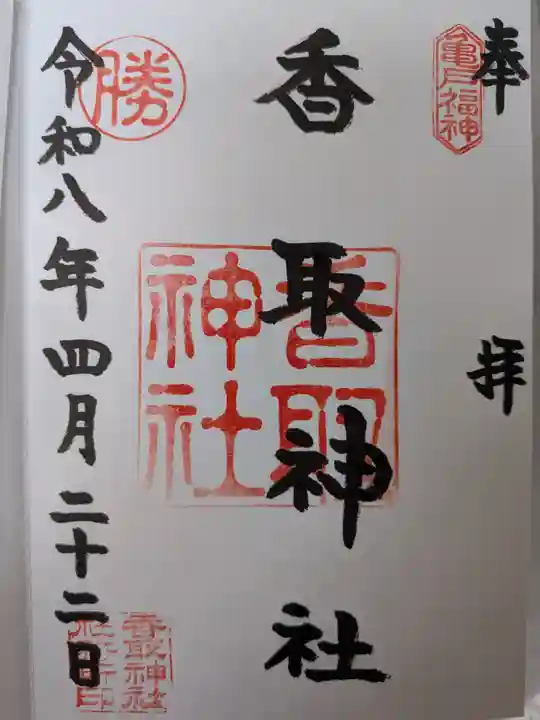 奉拝
亀戸福神
香取神社
香取神社
勝
令和八年四月二十二日
香取神社